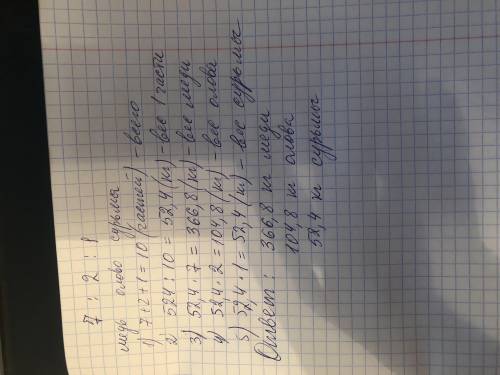 7 : 2 : 1
медь олово сурьмы
1) 7+2+1=10 (частей) - всего
2) 524 : 10 = 52,4 (кг) - вес 1 части
3) 52,4 · 7 = 366,8 (кг) - вес меди
4) 52,4 · 2 = 104,8 (кг) - вес олова
5) 52,4 · 1 = 52,4 (кг) - вес сурьмы
Ответ : 366,8 кг меди
104,8 кг олова
52,4 кг сурьмы